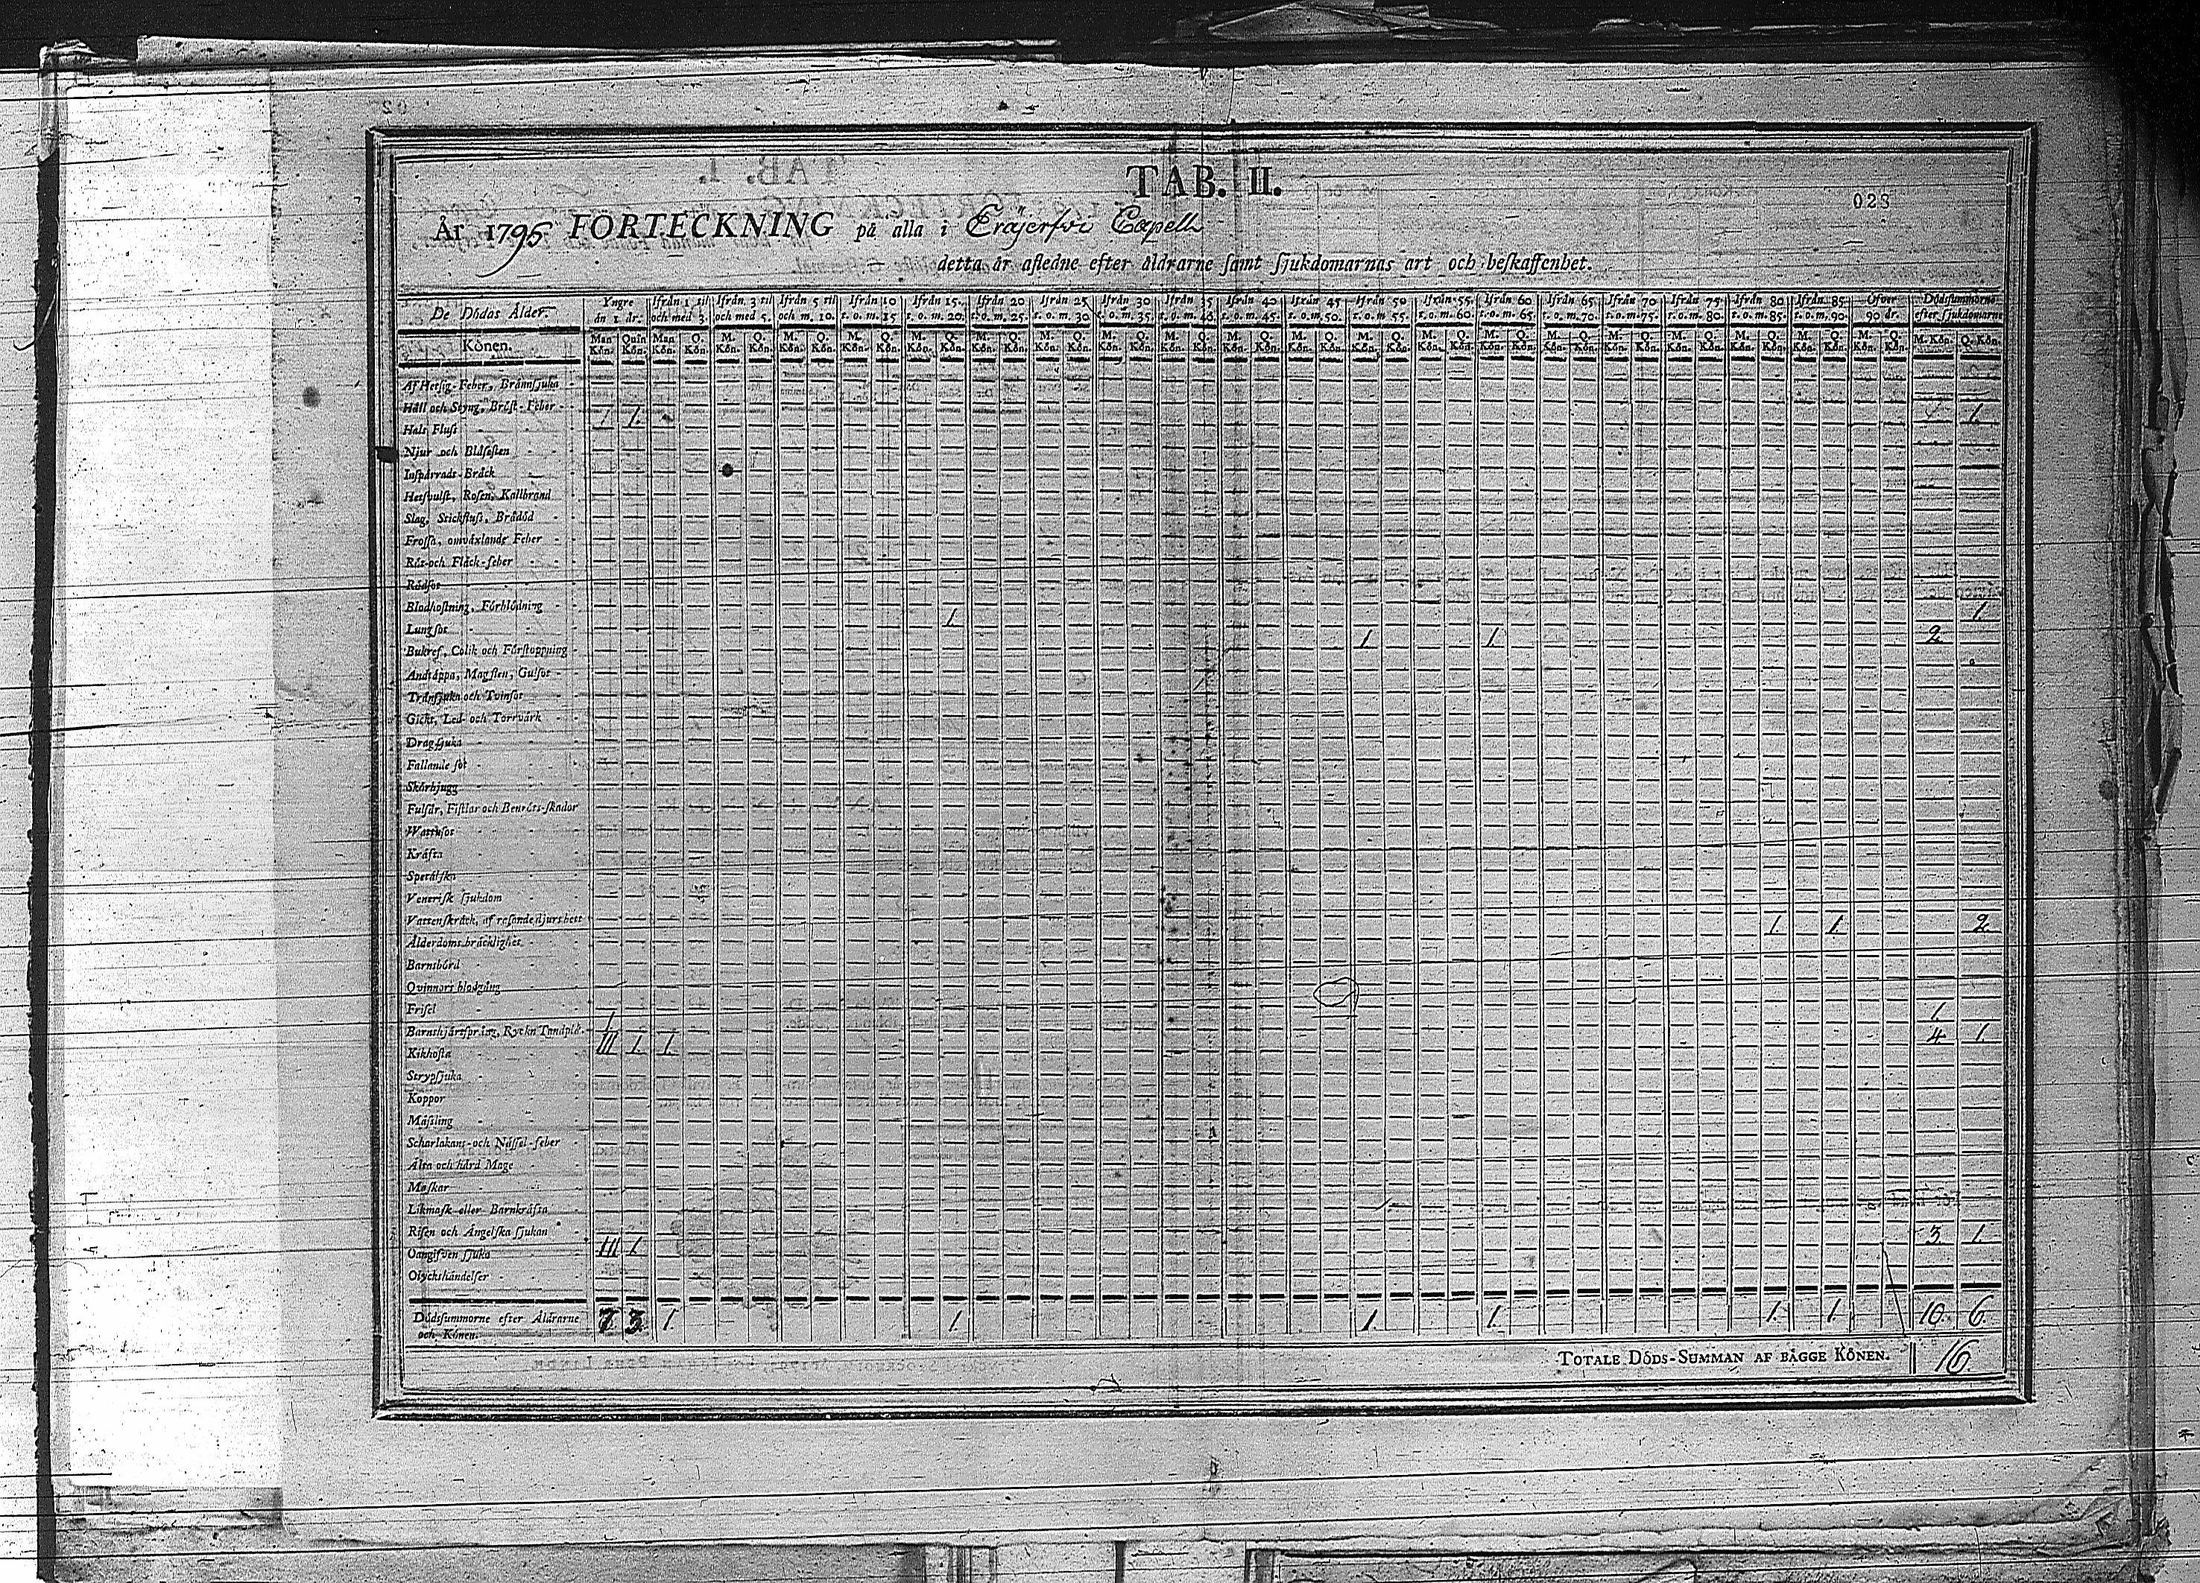 TAB. II.
028
År 1795 FÖRTECKNING på alla i Eräjerfvi Capell
detta år afledne efter åldrarne samt sjukdomarnas art och beskaffenhet.
De Dödas Ålder. Yngre än 1 år. Ifrån 1 til och med 3. Ifrån 3 til och med 5. Ifrån 5 til och m. 10. Ifrån 10 t. o. m. 15. Ifrån 15. t. o. m. 20. Ifrån 20 t. o. m. 25. Ifrån 25. t. o. m. 30. Ifrån 30 t. o. m. 35. Ifrån 35 t. o. m. 40. Ifrån 40. t. o. m. 45. Ifrån 45 t. o. m. 50. Ifrån 50 t. o. m. 55. Ifrån 55. t. o. m. 60. Ifrån 60 t. o. m. 65. Ifrån 65. t. o. m. 70. Ifrån 70 t. o. m. 75. Ifrån 75. t. o. m. 80. Ifrån 80. t. o. m. 85. Ifrån 85. t. o. m. 90. Öfver 90 år. Dödssummorne efter sjukdomarne
Könen. Man Kön. Quin Kön. Man Kön. Q. Kön. M. Kön. Q. Kön. M. Kön. Q. Kön. M. Kön. Q. Kön. M. Kön. Q. Kön. M. Kön. Q. Kön. M. Kön. Q. Kön. M. Kön. Q. Kön. M. Kön. Q. Kön. M. Kön. Q. Kön. M. Kön. Q. Kön. M. Kön. Q. Kön. M. Kön. Q. Kön. M. Kön. Q. Kön. M. Kön. Q. Kön. M. Kön. Q. Kön. M. Kön. Q. Kön. M. Kön. Q. Kön. M. Kön. Q. Kön. M. Kön. Q. Kön. M. Kön. Q. Kön.
Af Hetsig-Feber, Brännsjuka
Håll och Styng, Bröst-Feber
Hals Fluss 1 1. 1 1.
Njur och Blåsesten
Inspärrads Bråck
Hetsvulst, Rosen, Kallbrand
Slag, Stickfluss, Brådöd
Frossa, omväxlande Feber
Röt-och Fläck-feber
Rödsot
Blodhostning, Förblödning
Lungsot 1. 1.
Bukref, Colik och Förstoppning 1. 1. 2
Andtäppa, Magsten, Gulsot
Trånsjuka och Tvinsot
Gickt, Led- och Torrvärk
Dragsjuka
Fallande sot
Skörbjugg
Fulsår, Fistlar och Benröts-skador
Wattusot
Kräfta
Spetälska
Venerisk sjukdom
Vattenskräck, af rasande djurs bett
Ålderdoms bräcklighet 1. 1. 2
Barnsbörd
Qvinnors blodgång
Frisel
Barnshjärtsprång, Ryckn Tandplå. 1 1.
Kikhosta III 1. 1. 4 1.
Strypsjuka
Koppor
Mässling
Scharlakans-och Nässel-feber
Älta och hård Mage
Maskar
Likmask eller Barnkräfta
Risen och Ängelska sjukan
Oangifven sjuka III 1. 3. 1.
Olyckshändelser
Dödssummorne efter Åldrarne och Könen. 7. 3. 1. 1. 1. 1. 1. 1. 10. 6.
Totale Döds-Summan af bägge Könen. 16.